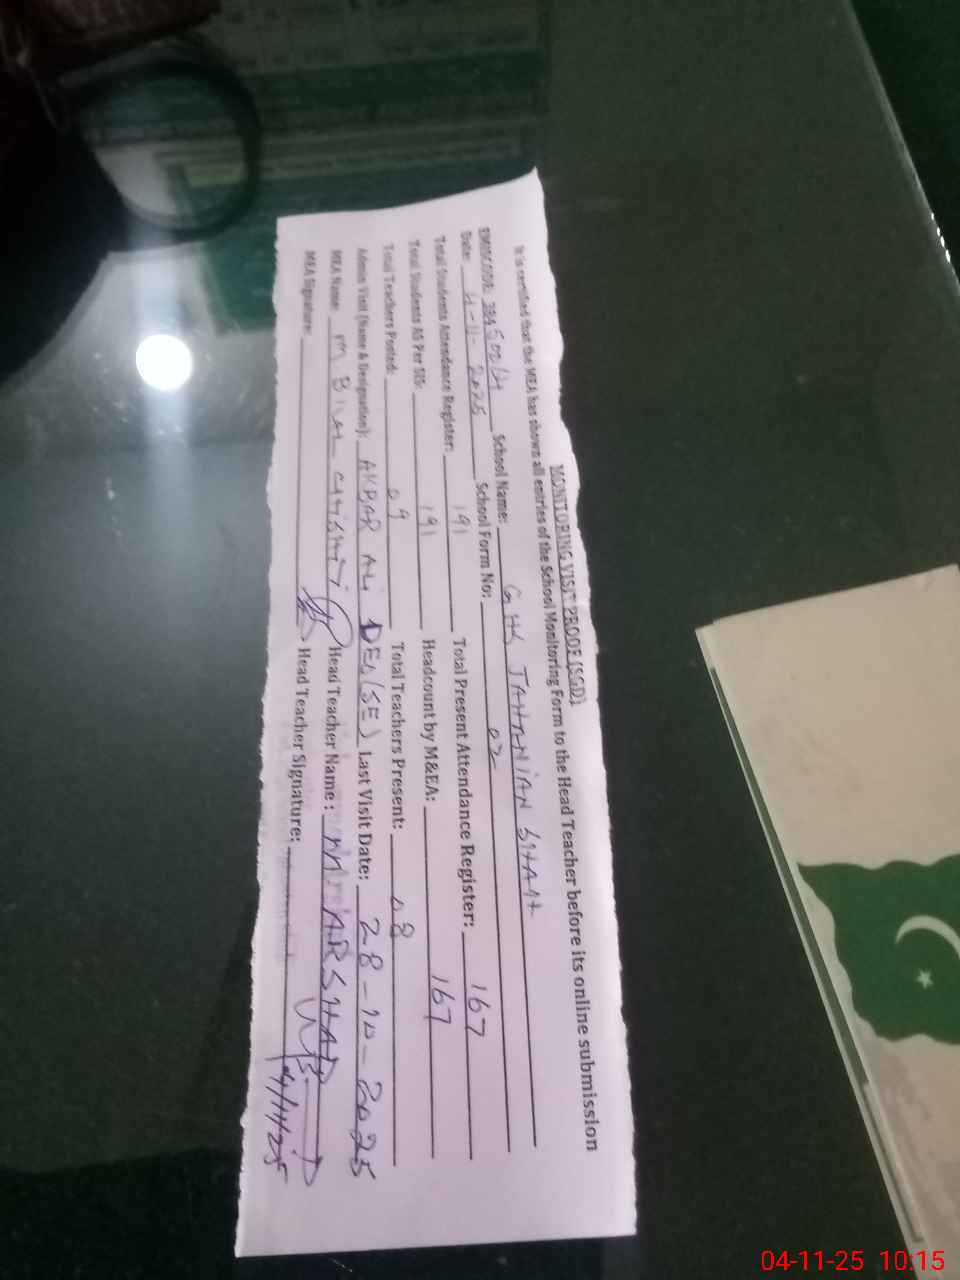 MONITORING VISIT PROOF (SGD)
It is certified that the MEA has shown all entries of the School Monitoring Form to the Head Teacher before its online submission
EMISCODE: School Name: GHS JAHANIAN SHAH
Date: 4-11-2025 School Form No: 02
Total Students Attendance Register: 191 Total Present Attendance Register: 167
Total Students AS Per SIS: 191 Headcount by M&EA: 167
Total Teachers Posted: 09 Total Teachers Present: 08
Admin Visit (Name & Designation): AKBAR ALI DEO(SE) Last Visit Date: 28-10-2025
MEA Name: M BILAL CHISHTI Head Teacher Name: ARSHAD
MEA Signature: Head Teacher Signature: 4/11/25
04-11-25 10:15